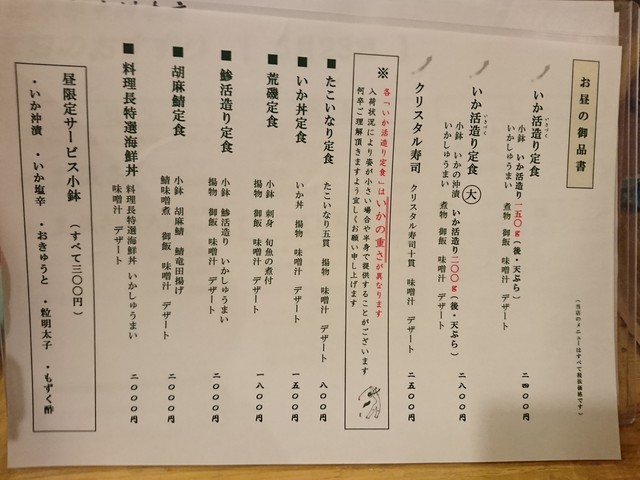 お昼の御品書
(当店のメニューはすべて税抜価格です)
いか活造り定食
いきづく
小鉢 いか活造り一五〇g(後・天ぷら)
いかしゅうまい 煮物 御飯 味噌汁 デザート
二四〇〇円
いか活造り定食 大
いきづく
小鉢 いかの沖漬 いか活造り二〇〇g(後・天ぷら)
いかしゅうまい 煮物 御飯 味噌汁 デザート
二八〇〇円
クリスタル寿司 クリスタル寿司十貫 味噌汁 デザート 二五〇〇円
※ 各「いか活造り定食」はいかの重さが異なります
入荷状況により姿が小さい場合や半身で提供することがございます
何卒ご理解頂きますよう宜しくお願い申し上げます
■たこいなり定食 たこいなり五貫 揚物 味噌汁 デザート 八〇〇円
■いか丼定食 いか丼 揚物 味噌汁 デザート 一五〇〇円
■荒磯定食
小鉢 刺身 旬魚の煮付
揚物 御飯 味噌汁 デザート
一八〇〇円
■鯵活造り定食
小鉢 鯵活造り いかしゅうまい
揚物 御飯 味噌汁 デザート
二〇〇〇円
■胡麻鯖定食
小鉢 胡麻鯖 鯖竜田揚げ
鯖味噌煮 御飯 味噌汁 デザート
二〇〇〇円
■料理長特選海鮮丼
料理長特選海鮮丼 いかしゅうまい
味噌汁 デザート
二〇〇〇円
昼限定サービス小鉢 (すべて三〇〇円)
・いか沖漬 ・いか塩辛 ・おきゅうと ・粒明太子 ・もずく酢